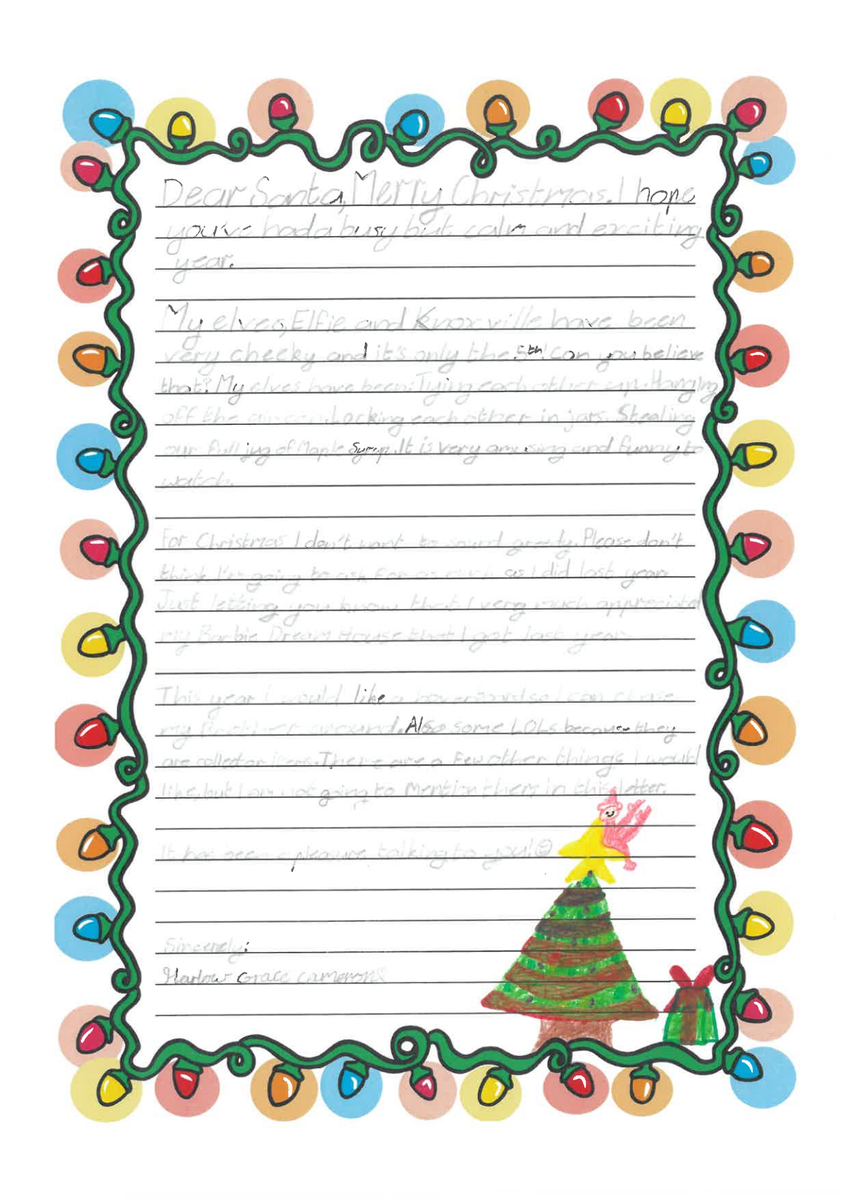 Dear Santa, Merry Christmas. I hope
you've had a busy but calm and exciting
year.
My elves, Elfie and Knoxville have been
very cheeky and it's only the 5th! Can you believe
that? My elves have been: Tying each other up. Hanging
off the Locking each other in jars. Stealing
our full jug of Maple Syrup. It is very amusing and funny to
watch.
For Christmas I don't want to sound greedy. Please don't
think I'm going to ask for as much as I did last year.
Just letting you know that I very much appreciated
my Barbie Dream House that I got last year.
This year i would like a hoverboard so I can chase
my around. Also some LOLs because they
are collector items. There are a few other things I would
like, but I am not going to Mention them in this letter.
It has been a pleasure talking to you!
Sincerely:
Harlow Grace Cameron